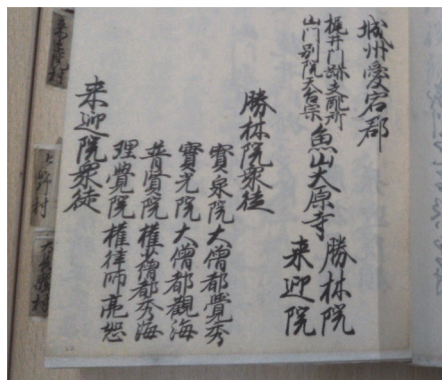 城州愛宕郡
梶井門跡支配所
山門別院天台宗
魚山大原寺
勝林院
来迎院
勝林院衆徒
寳泉院大僧都覺秀
寳光院大僧都觀海
普賢院權少僧都秀海
理覺院權律師亮恕
来迎院衆徒